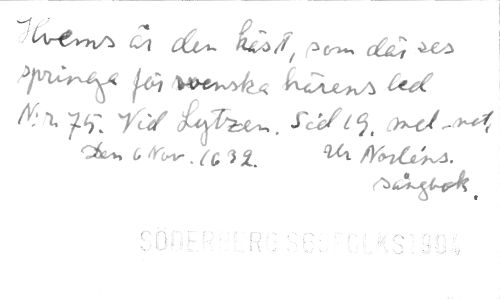 Hvems är den häst, som där ses
springa för svenska härens led
N:r 75. Vid Lytzen. Sid 19. mel-not,
Den 6 Nov. 1632. Ur Norléns.
sångbok.
SÖDERBERG